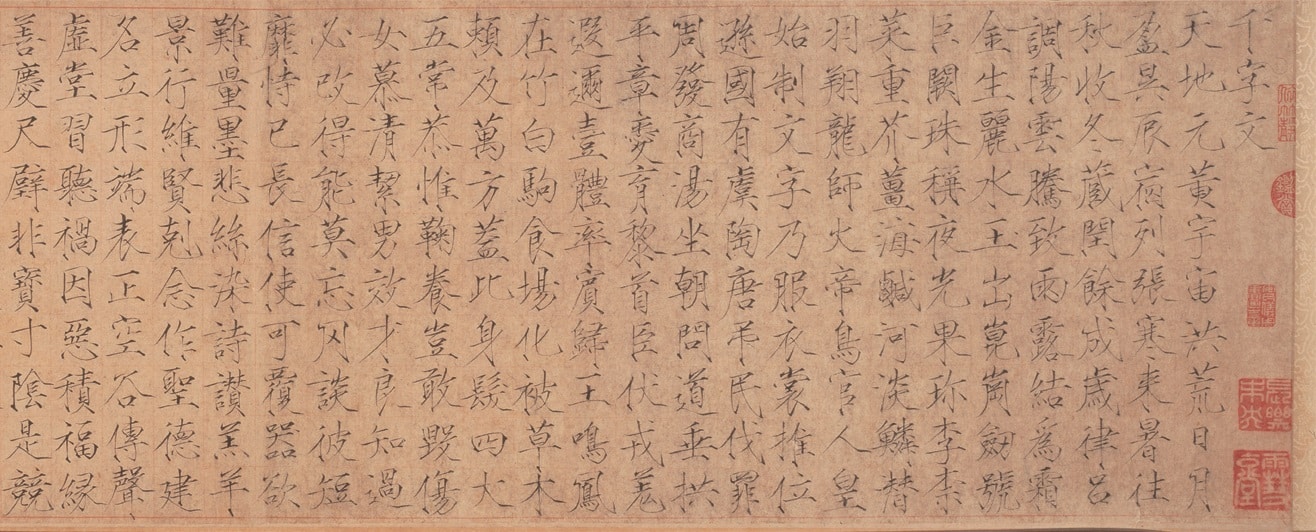 千字文
天地元黃宇宙洪荒日月
盈昃辰宿列張寒來暑往
秋收冬藏閏餘成歲律呂
調陽雲騰致雨露結爲霜
金生麗水玉出崑崗劒號
巨闕珠稱夜光果珍李柰
菜重芥薑海鹹河淡鱗潛
羽翔龍師火帝鳥官人皇
始制文字乃服衣裳推位
遜國有虞陶唐弔民伐罪
周發商湯坐朝問道垂拱
平章愛育黎首臣伏戎羌
遐邇壹體率賓歸王鳴鳳
在竹白駒食場化被草木
賴及萬方蓋此身髮四大
五常恭惟鞠養豈敢毀傷
女慕清絜男效才良知過
必改得能莫忘罔談彼短
靡恃己長信使可覆器欲
難量墨悲絲染詩讚羔羊
景行維賢剋念作聖德建
名立形端表正空谷傳聲
虛堂習聽禍因惡積福緣
善慶尺璧非寶寸陰是競